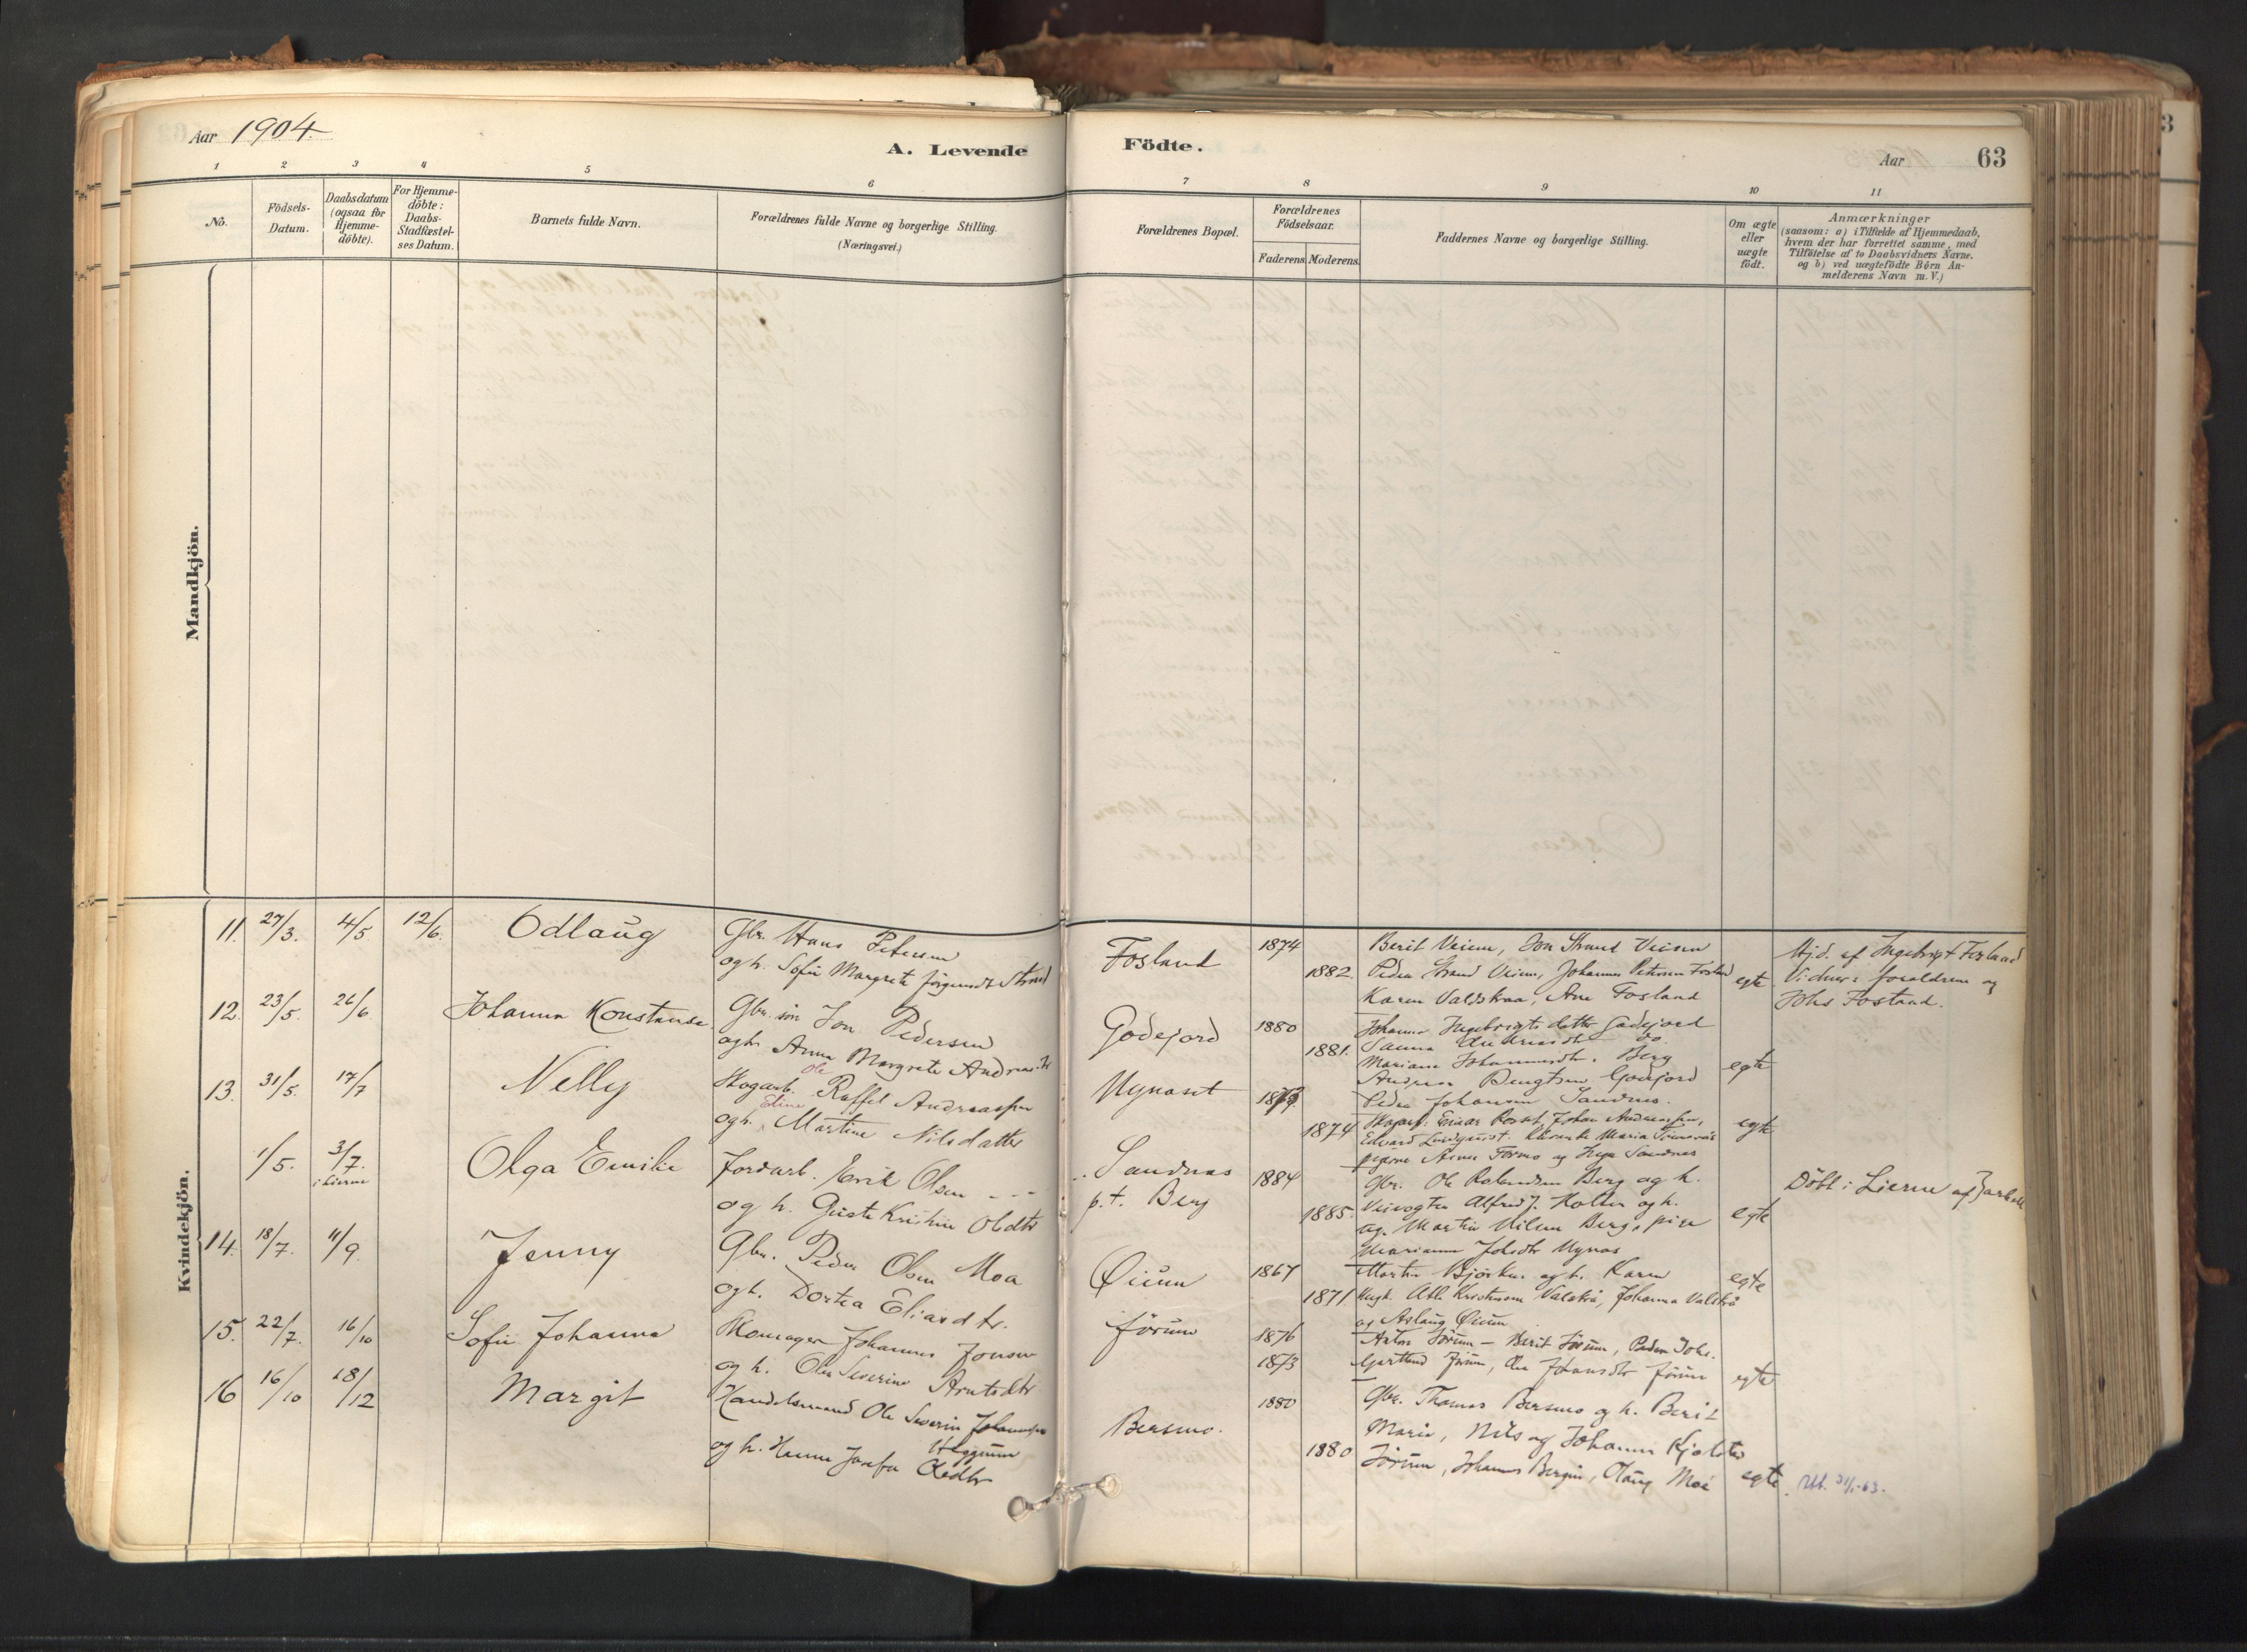 Aar 1904.
A. Levende Födte.
Aar
63
1 2 3 4 5 6 7 8 9 10 11
No.
Födsels-Datum.
Daabsdatum (ogsaa for Hjemme-döbte).
For Hjemme-döbte: Daabs-Stadfæstel-ses Datum.
Barnets fulde Navn.
Forældrenes fulde Navne og borgerlige Stilling.
(Næringsvei.)
Forældrenes Bopæl.
Forældrenes Födselsaar.
Faderens. Moderens.
Faddernes Navne og borgerlige Stilling.
Om ægte eller uægte födt.
Anmærkninger
(saasom: a) i Tilfælde af Hjemmedaab,
hvem der har forrettet samme, med
Tilföielse af to Daabsvidners Navne.
og b) ved uægtefödte Börn An-
melderens Navn m. V.)
Mandkjön.
Kvindekjön.
11. 27/3. 4/5 12/6. Odlaug
Gbr. Hans Petersen
og h. Sofie Margrete Jörgensdt Strand
Fosland
1874
1882.
Berit Veiem, Jon Strand Veiem
Peder Strand Veiem, Johannes Petersen Fosland
Karen Valdskraa, Ane Fosland
egte
Hjd. af Ingebrigt Fosland
Vidner: forældrene og
Johs Fosland.
12. 23/5. 26/6 Johanna Konstanse
Gbr. sön Jon Pedersen
og h. Anna Margrete Andreasdtr
Godejord
1880
1881.
Johanna Ingebrigtsdatter Godejord
Sanna Andreasdt do.
Mariane Johannesdtr. Berg
Andreas Bengtsen Godejord
Peder Johansen Sandnes.
egte
13. 31/5. 17/7 Nelly
Ole
Skogarb. Raffel Andreassen
Eline
og h. Martine Nilsdatter
Mynaset
1873
1874
Skogarb. Einar Rosset, Johan Andreassen,
Edvard Lundquist.
pigerne Anna Formo og Inga Sandnes
egte
1/5. 3/7. i Lierne Olga Emilie
Jordarb. Erik Olsen
og h. Gusta Kristine Olsdtr
Sandnas
p.t. Berg
1884
1885.
Gbr. Ole Rolandsen Berg og h.
Veivogter Alfred J. Holm og h.
ug. Martin Nilsen Berg, pige
Marianne Johsdtr Mynas
egte
Döbt i Lierne af
14. 18/7. 11/9. Jenny
Gbr. Peder Olsen Moa
og h. Dortea Eliasdtr.
Öium
1867
1871
Martin Björhus og h. Karen
Ungk. Atle Kristensen Valskrå, Johanna Valskrå
og Aslaug Öium
egte
15. 22/7. 16/10 Sofie Johanna
Skomager Johannes Jonsen
og h. Oline Severine Arntsdtr
Jörum
1876
1873
Anton Jörum – Berit Jörum, Peder Johs.
Gartland Jörum, Johansdtr Jörum
egte
16 16/10 18/12 Margit
Handelsmand Ole Severin Johannessen
Heggum
og h. Hanna Josefa Olsdtr
Bersmo.
1880
1880
Gbr. Thomas Bersmo og h. Berit
Marie, Nils og Johanna Kjolstad
Jörum, Johannes Bergsmo, Olaug Moe
egte.
Utt. 31/1-63.